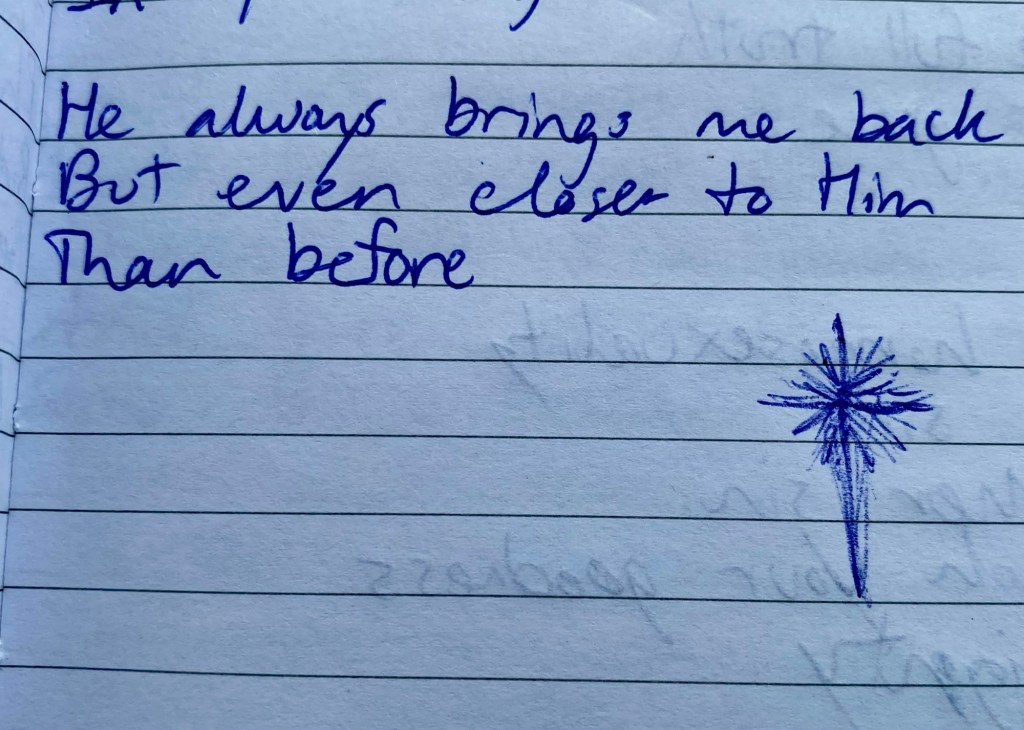 He always brings me back
But even closer to Him
Than before